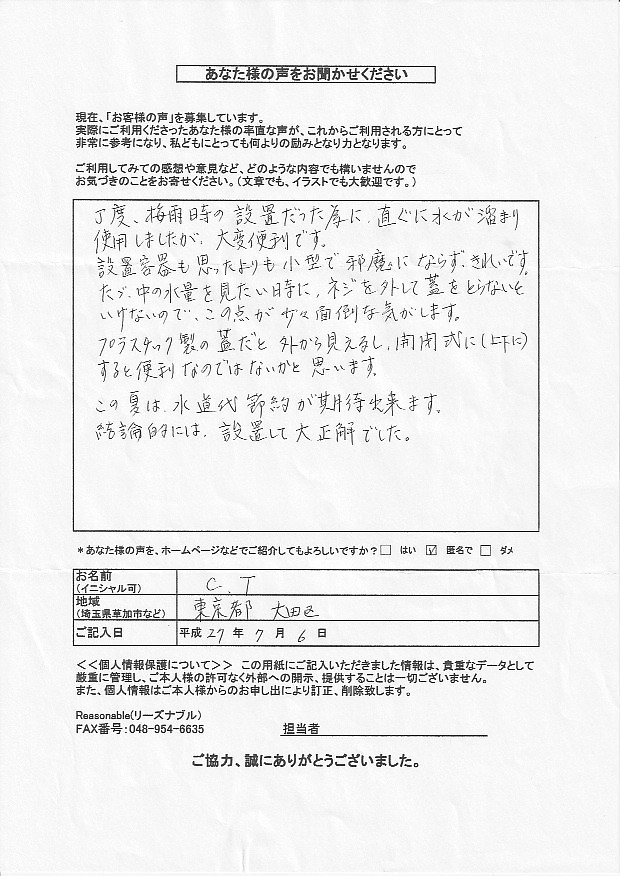 あなた様の声をお聞かせください
現在、「お客様の声」を募集しています。
実際にご利用くださったあなた様の率直な声が、これからご利用される方にとって
非常に参考になり、私どもにとっても何よりの励みとなり力となります。
ご利用してみての感想や意見など、どのような内容でも構いませんので
お気づきのことをお寄せください。(文章でも、イラストでも大歓迎です。)
丁度、梅雨時の設置だった為に、直ぐに水が溜まり
使用しましたが、大変便利です。
設置容器も思ったよりも小型で邪魔にならず、きれいです。
たゞ、中の水量を見たい時に、ネジを外して蓋をとらないと
いけないので、この点が少々面倒な気がします。
プラスチック製の蓋だと外から見えるし、開閉式に(上下に)
すると便利なのではないかと思います。
この夏は、水道代節約が期待出来ます。
結論的には、設置して大正解でした。
*あなた様の声を、ホームページなどでご紹介してもよろしいですか?□ はい ☑ 匿名で □ ダメ
お名前
(イニシャル可) C.T
地域
(埼玉県草加市など) 東京都 大田区
ご記入日 平成 27 年 7 月 6 日
<<個人情報保護について>> この用紙にご記入いただきました情報は、貴重なデータとして
厳重に管理し、ご本人様の許可なく外部への開示、提供することは一切ございません。
また、個人情報はご本人様からのお申し出により訂正、削除致します。
Reasonable(リーズナブル)
FAX番号:048-954-6635 担当者
ご協力、誠にありがとうございました。